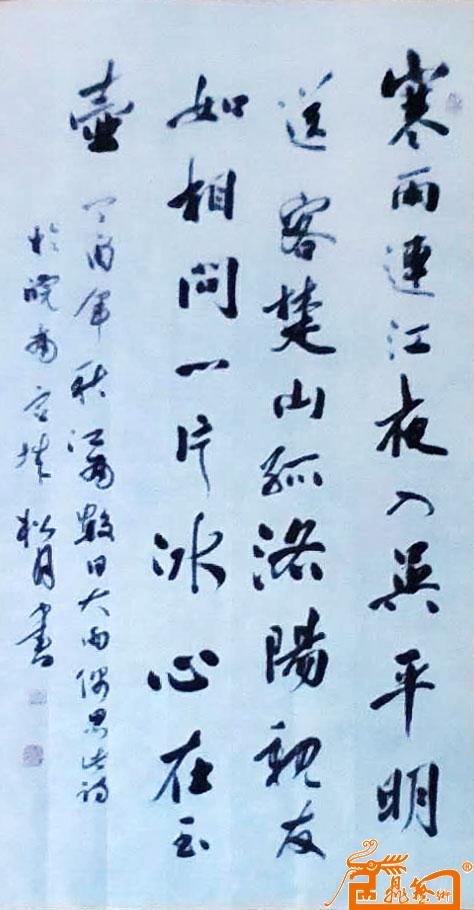 寒雨連江夜入吳平明
送客楚山孤洛陽親友
如相問一片冰心在玉
壺 丁酉年秋江南數日大雨偶思此詩
於皖南宣城 松月書